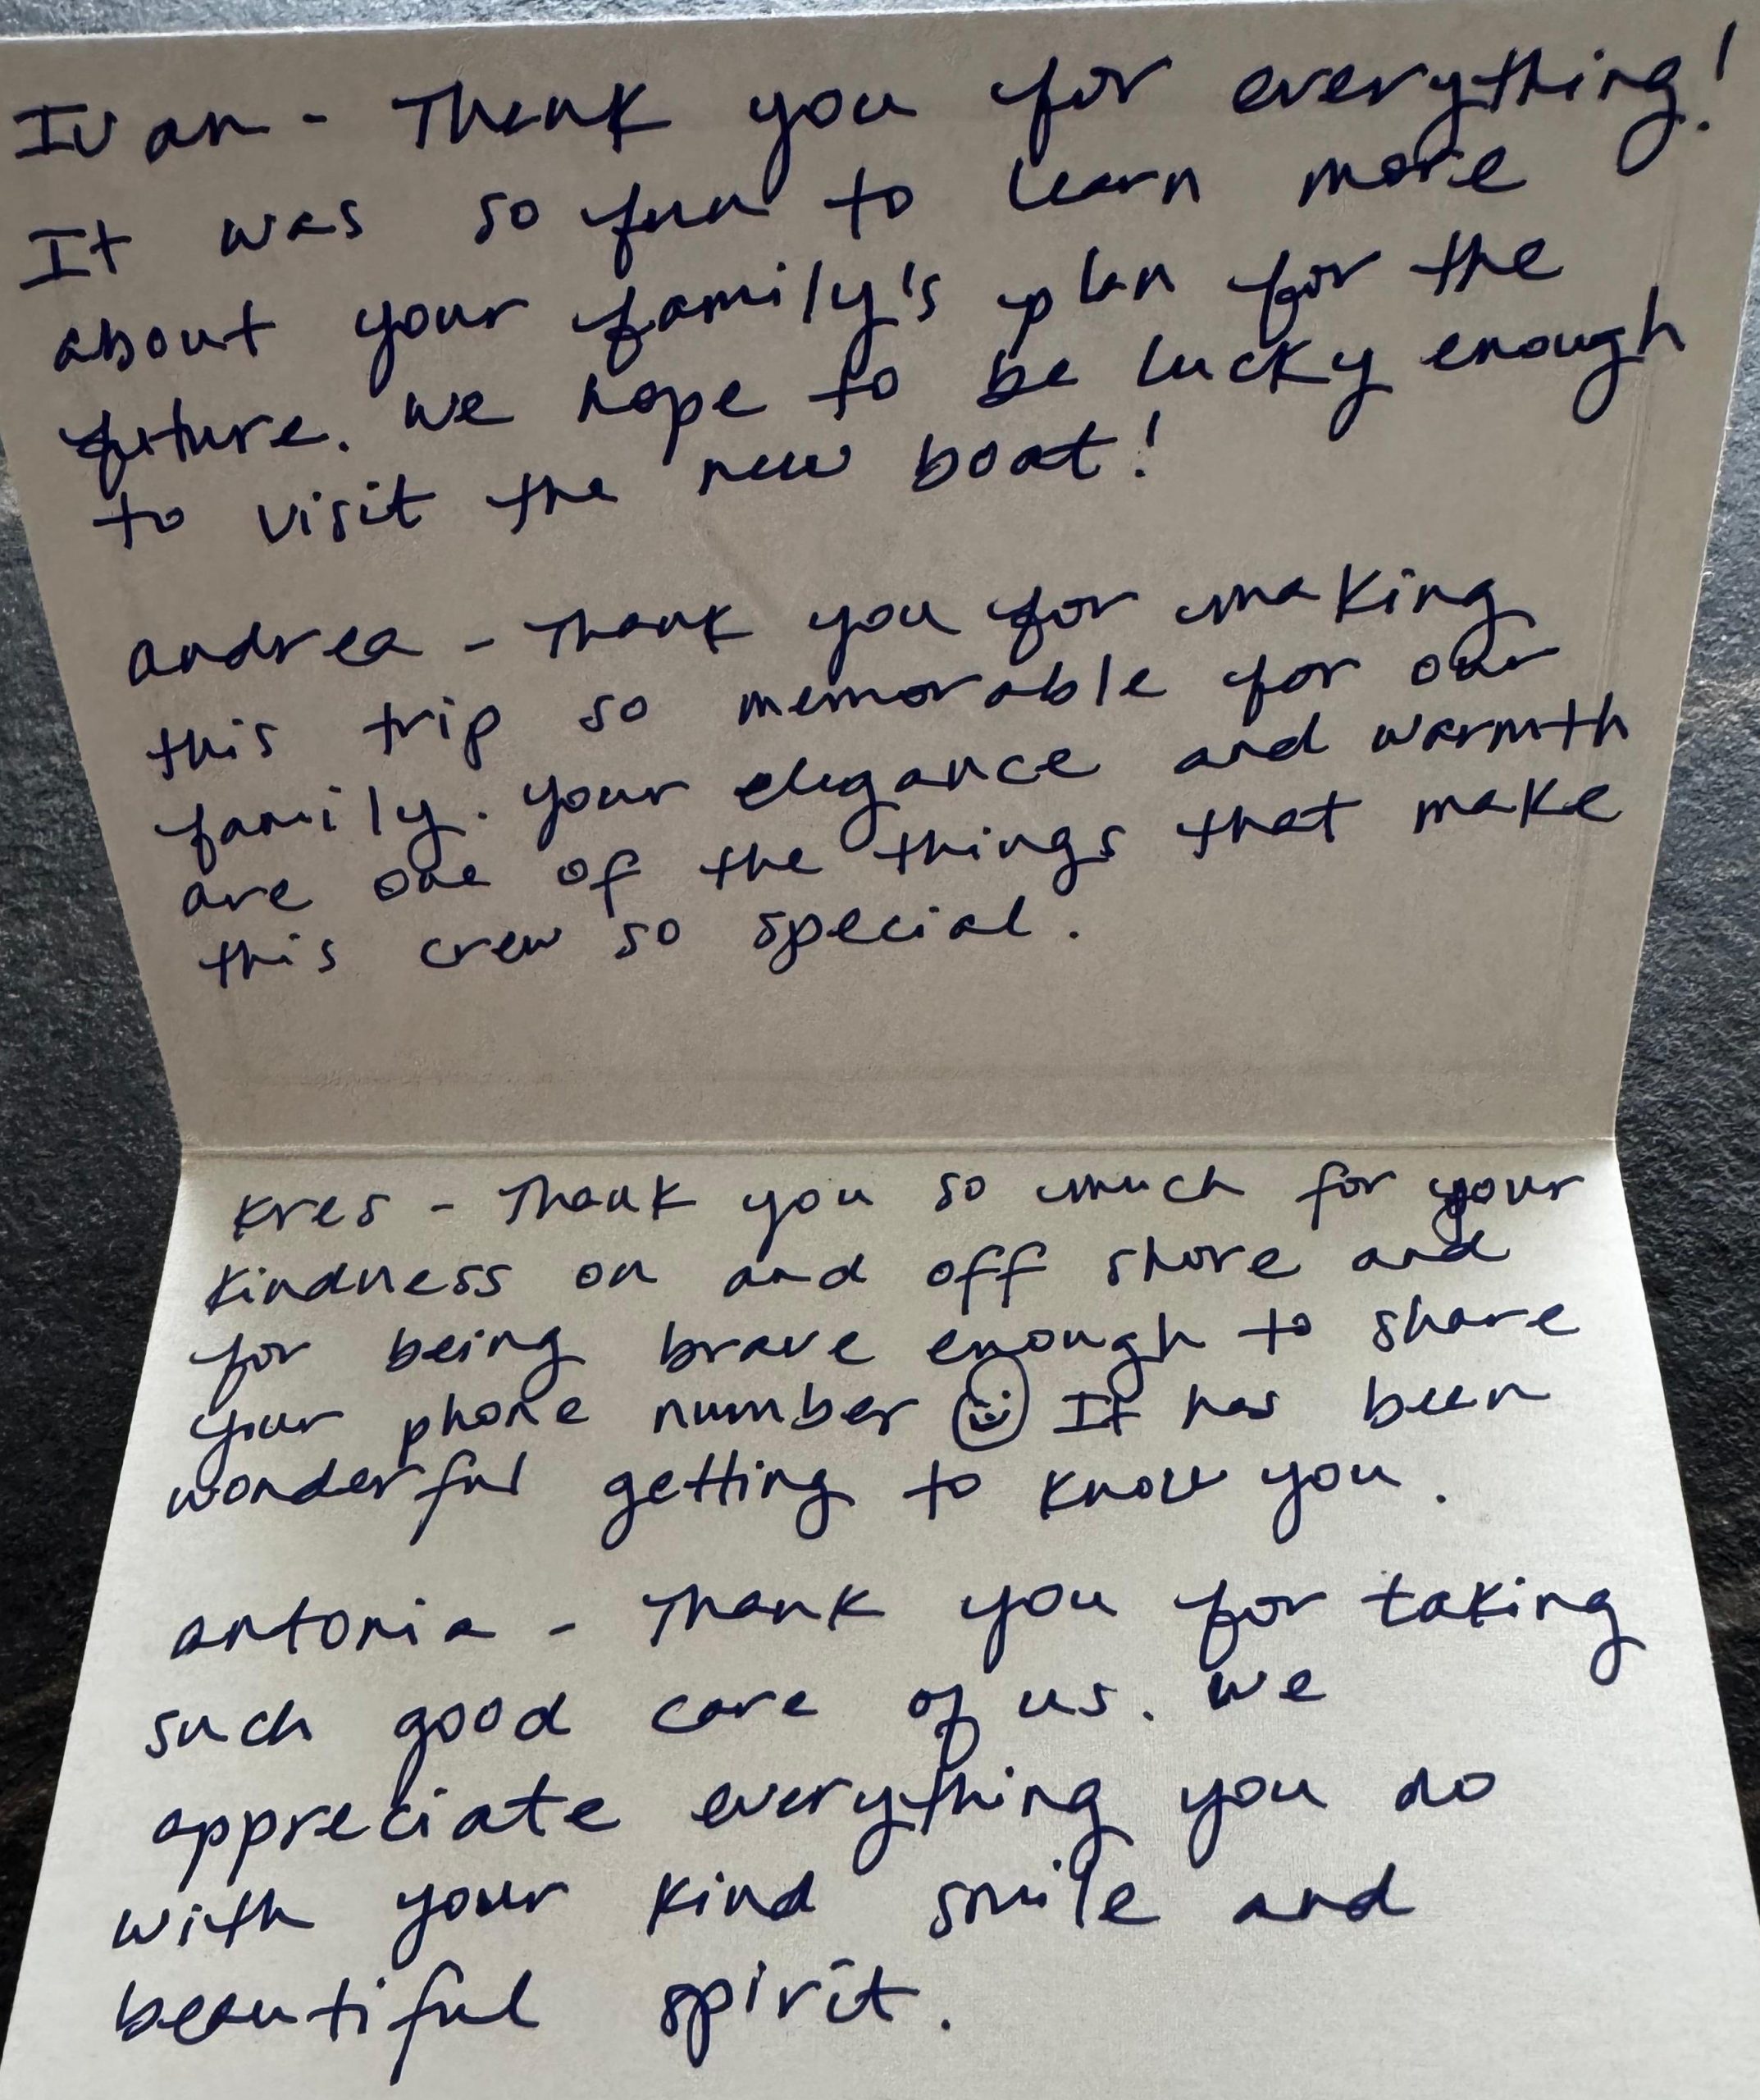 Ivan - Thank you for everything!
It was so fun to learn more
about your family's plan for the
future. We hope to be lucky enough
to visit the new boat!
Andrea - Thank you for making
this trip so memorable for our
family. Your elegance and warmth
are one of the things that make
this crew so special.
Kres - Thank you so much for your
kindness on and off shore and
for being brave enough to share
your phone number ☺ It has been
wonderful getting to know you.
Antonia - Thank you for taking
such good care of us. We
appreciate everything you do
with your kind smile and
beautiful spirit.